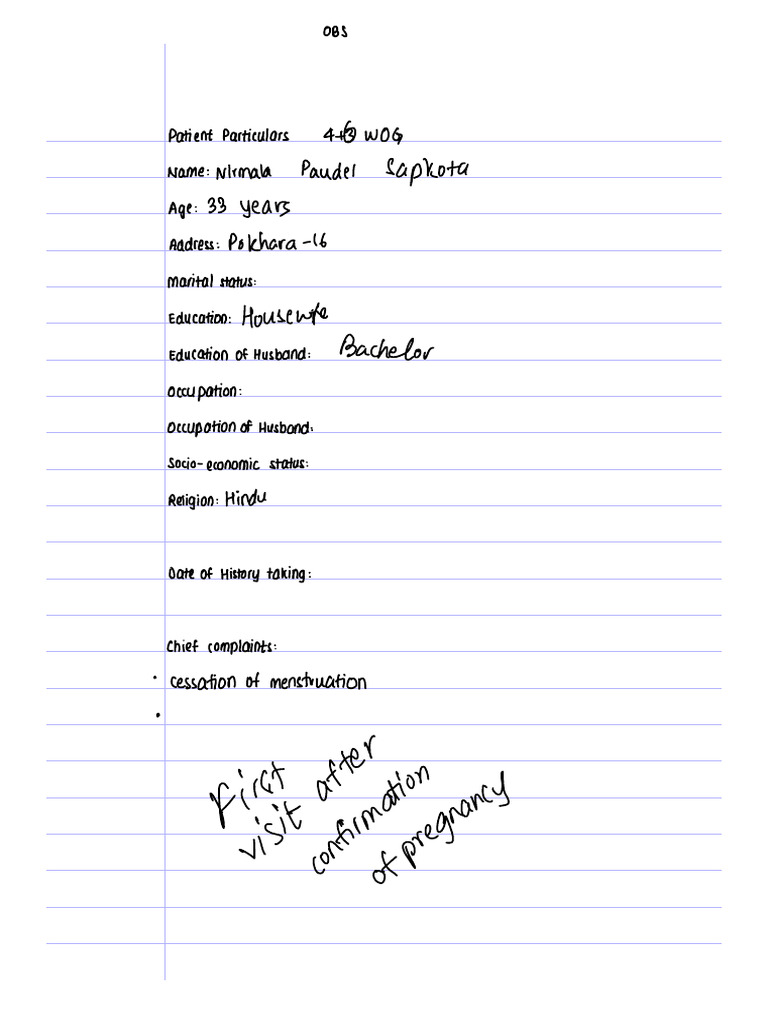 OBS
Patient Particulars 4+3 WOG
Name: Nirmala Paudel Sapkota
Age: 33 years
Address: Pokhara-16
Marital status:
Education: Housewife
Education of Husband: Bachelor
Occupation:
Occupation of Husband:
Socio-economic status:
Religion: Hindu
Date of History taking:
Chief complaints:
• cessation of menstruation
•
First
visit after
confirmation
of pregnancy